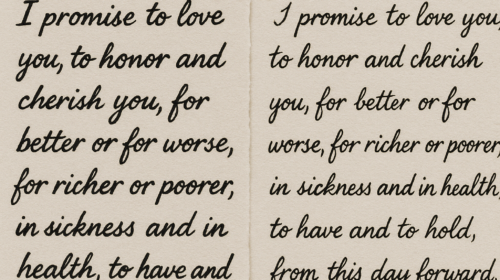 I promise to love
you, to honor and
cherish you, for
better or for worse,
for richer or poorer,
in sickness and in
health, to have and
I promise to love you,
to honor and cherish
you, for better or for
worse, for richer or poorer,
in sickness and in health,
to have and to hold,
from this day forward,